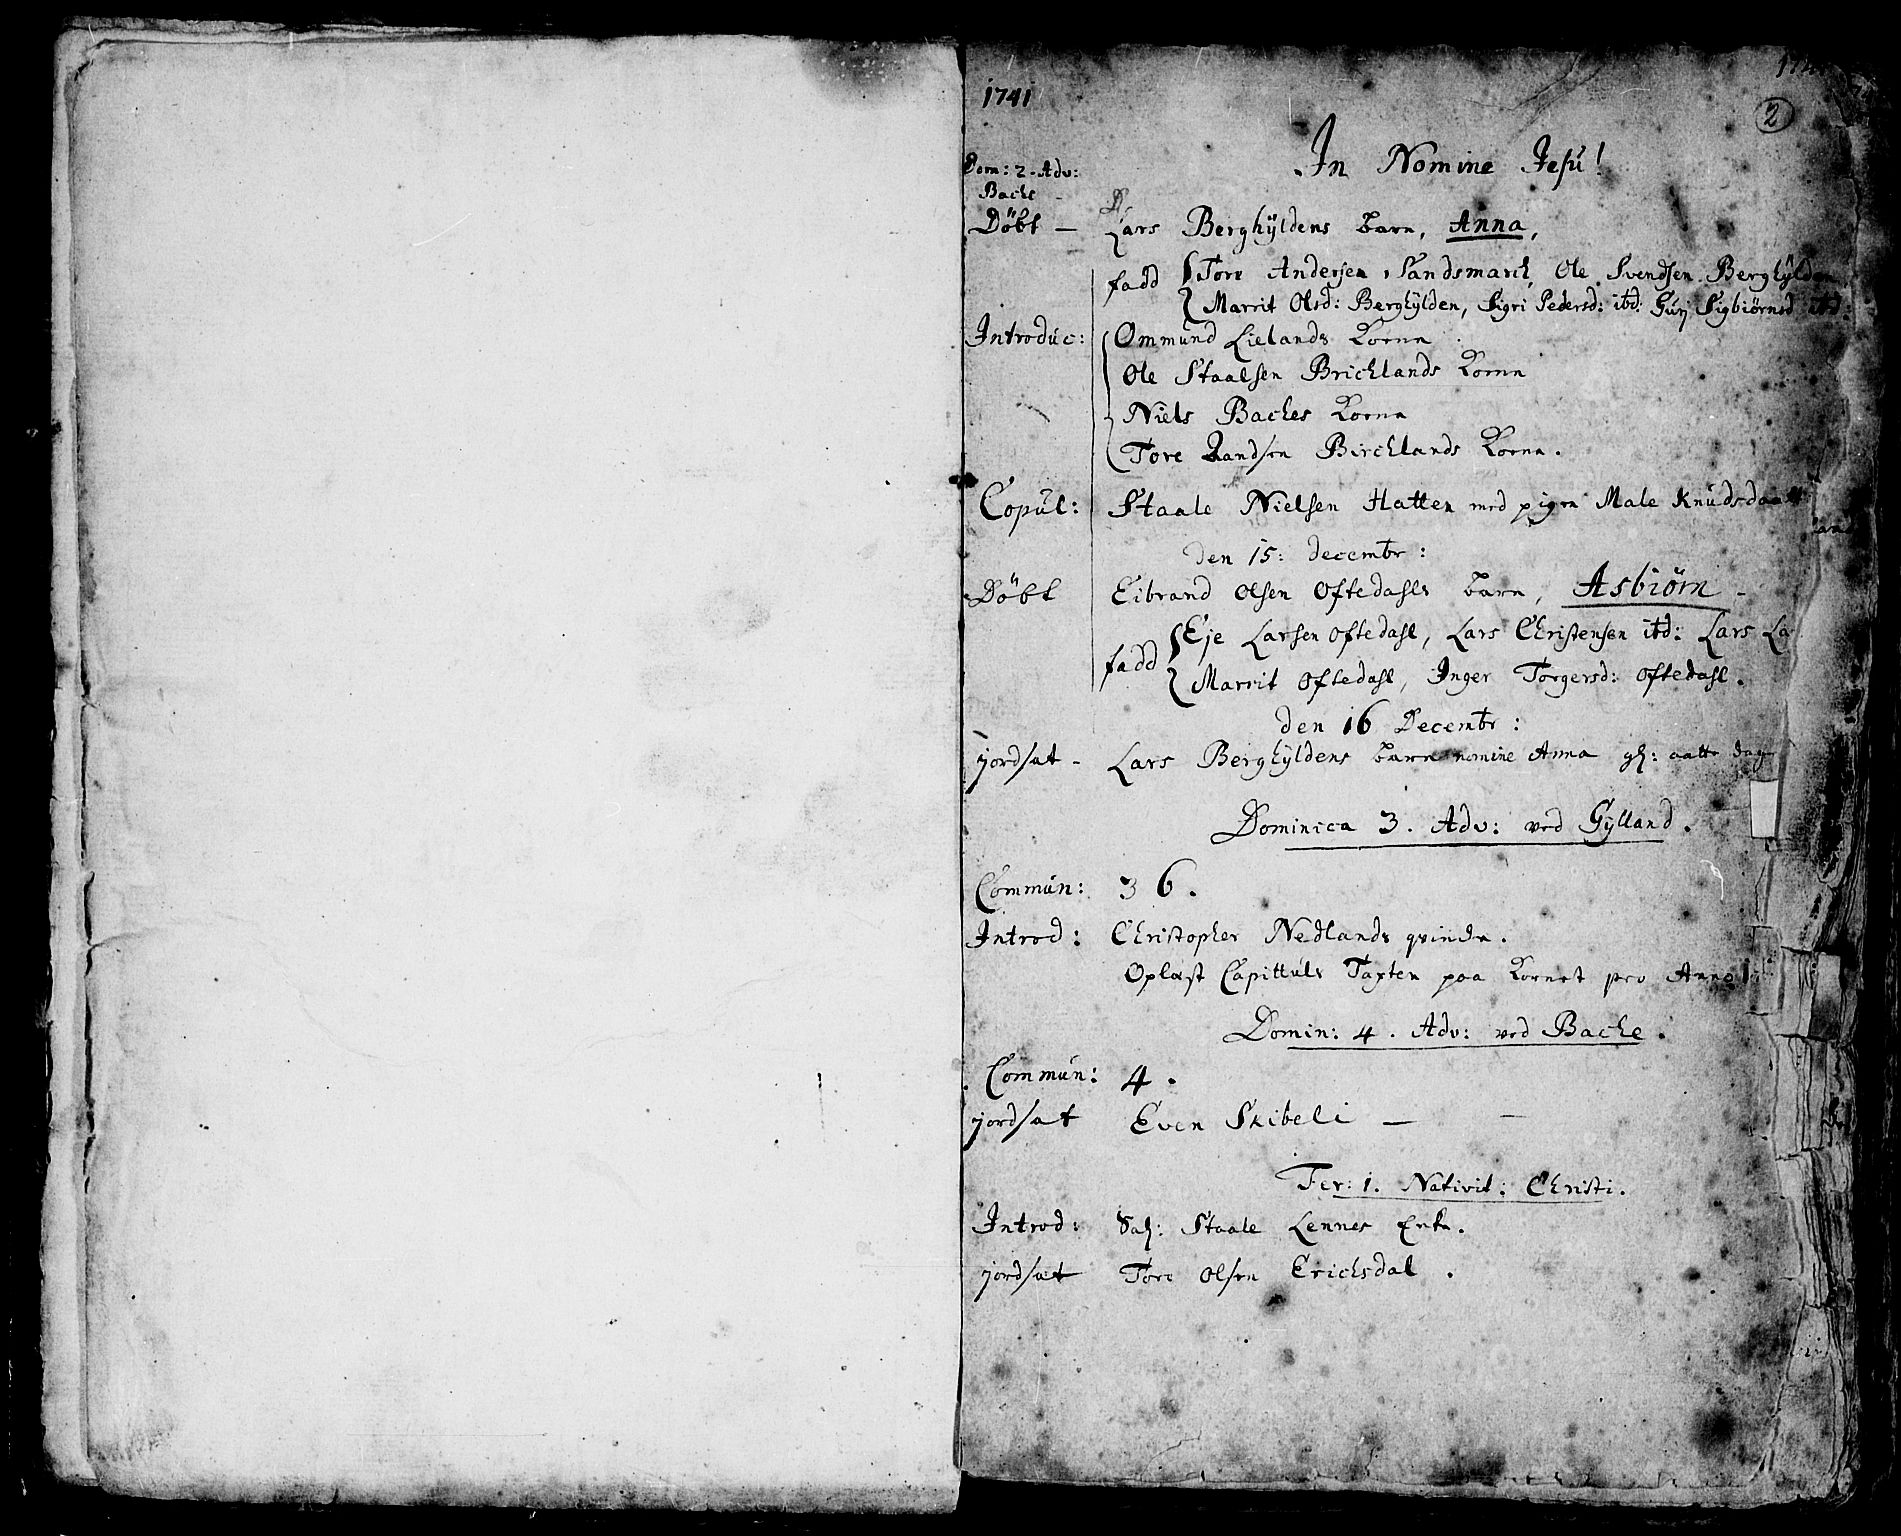 1741
2
In Nomine Jesu!
Dom: 2. Adv:
Bache
Döbt — Lars Berghÿldens barn, Anna,
fadd Tore Andersen Sandsmarch, Ole Svendsen Berghÿlden
Marrit Olsd: Berghÿlden, Sigri Pedersd: ibd: Guri Sigbiørnsd ibd:
Introduc: Ommund Lielands Kone
Ole Staalsen Brichlands Kone
Niels Baches Kone
Tore Aandsen Birchlands Kone.
Copul: Staale Nielsen Hatten med pigen Male Knudsdaatt
den 15: decembr:
Döbt Eibrand Olsen Oftedahls barn, Asbiørn
fadd Eje Larsen Oftedahl, Lars Christensen ibd: Lars La
Marrit Oftedahl, Inger Torgersd: Oftedahl.
den 16 Decembr:
jordsat - Lars Berghÿldens barn nomine Anna gl: aatte dage
Dominica 3. Adv: ved Gÿlland.
Commun: 36.
Introd: Christopher Nedlands qvinde.
Oplæst Capittuls Taxten paa Kornet pro Anno
Domin: 4. Adv: ved Bache.
Commun: 4.
jordsat Even Skibeli —
Fer: 1. Nativit: Christi.
Introd: Sal: Staale Lennes Enke.
jordsat Tore Olsen Erichsdal.